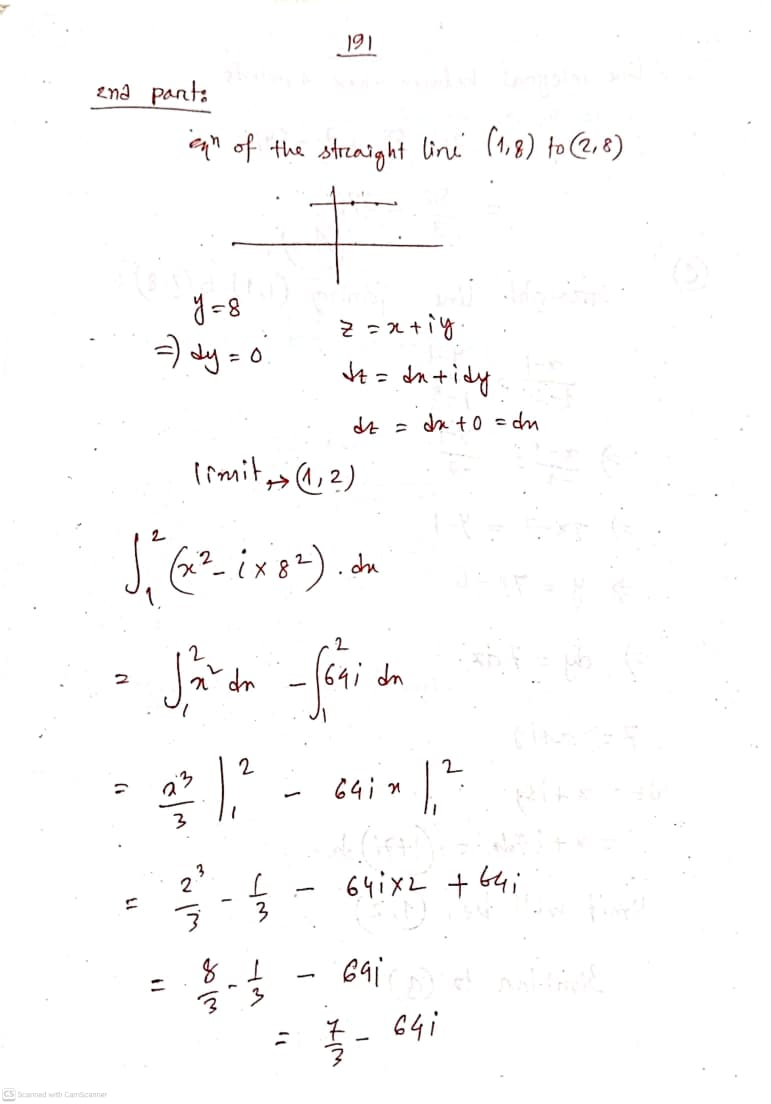 191
2nd part:
eqn of the straight line (1,8) to (2,8)
y=8
z = x+iy
⇒ dy = 0
dz = dx+idy
dz = dx+0 = dx
limit → (1,2)
∫₁² (x² - i×8²).dx
= ∫₁² x² dx - ∫₁² 64i dx
= x³/3 |₁² - 64i x |₁²
= 2³/3 - 1/3 - 64i×2 + 64i
= 8/3 - 1/3 - 64i
= 7/3 - 64i
CS Scanned with CamScanner